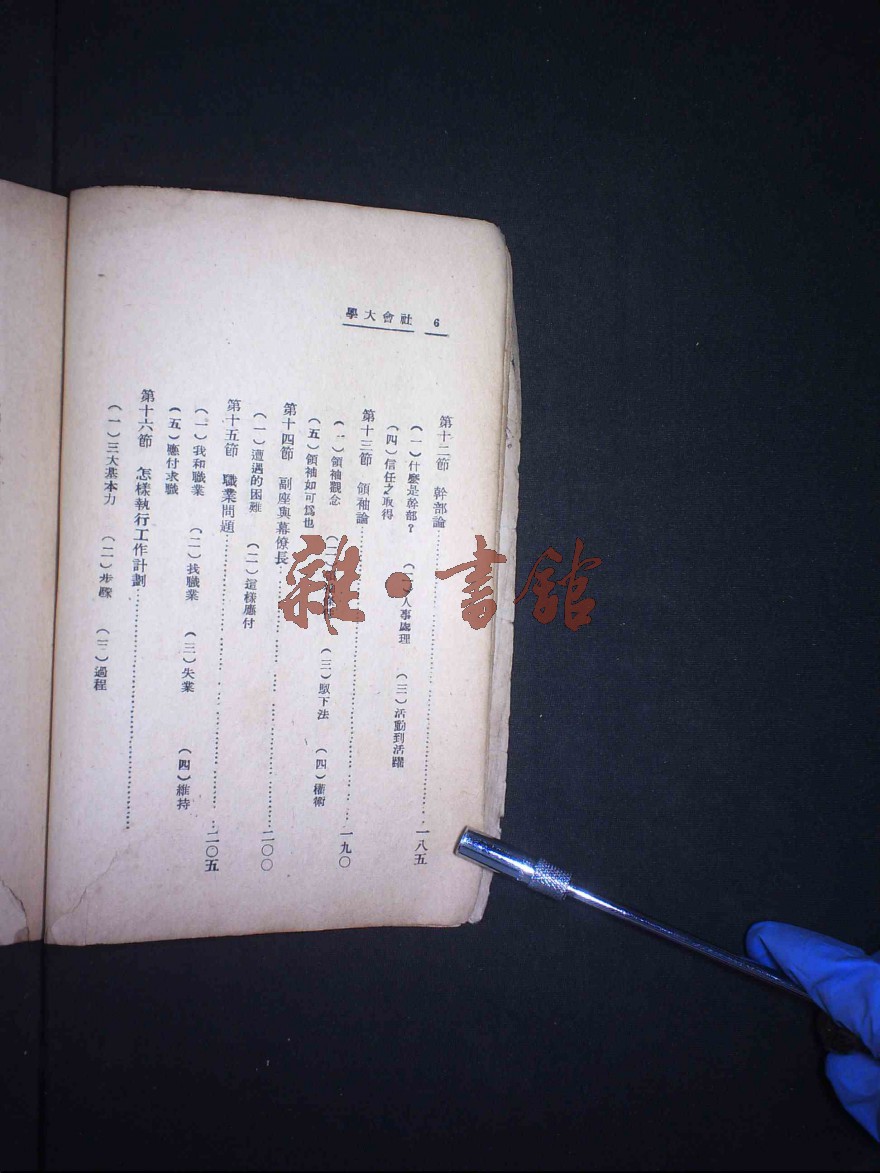 6 社會大學
第十二節 幹部論 一八五
(一)什麽是幹部? 人事處理 (三)活動到活躍
(四)信任之取得
第十三節 領袖論 一九〇
(一)領袖觀念 (三)馭下法 (四)權術
(五)領袖如可爲也
第十四節 副座與幕僚長 二〇〇
(一)遭遇的困難 (二)這樣應付
第十五節 職業問題 二〇五
(一)我和職業 (二)找職業 (三)失業 (四)維持
(五)應付求職
第十六節 怎樣執行工作計劃
(一)三大基本力 (二)步驟 (三)過程
雜·書館